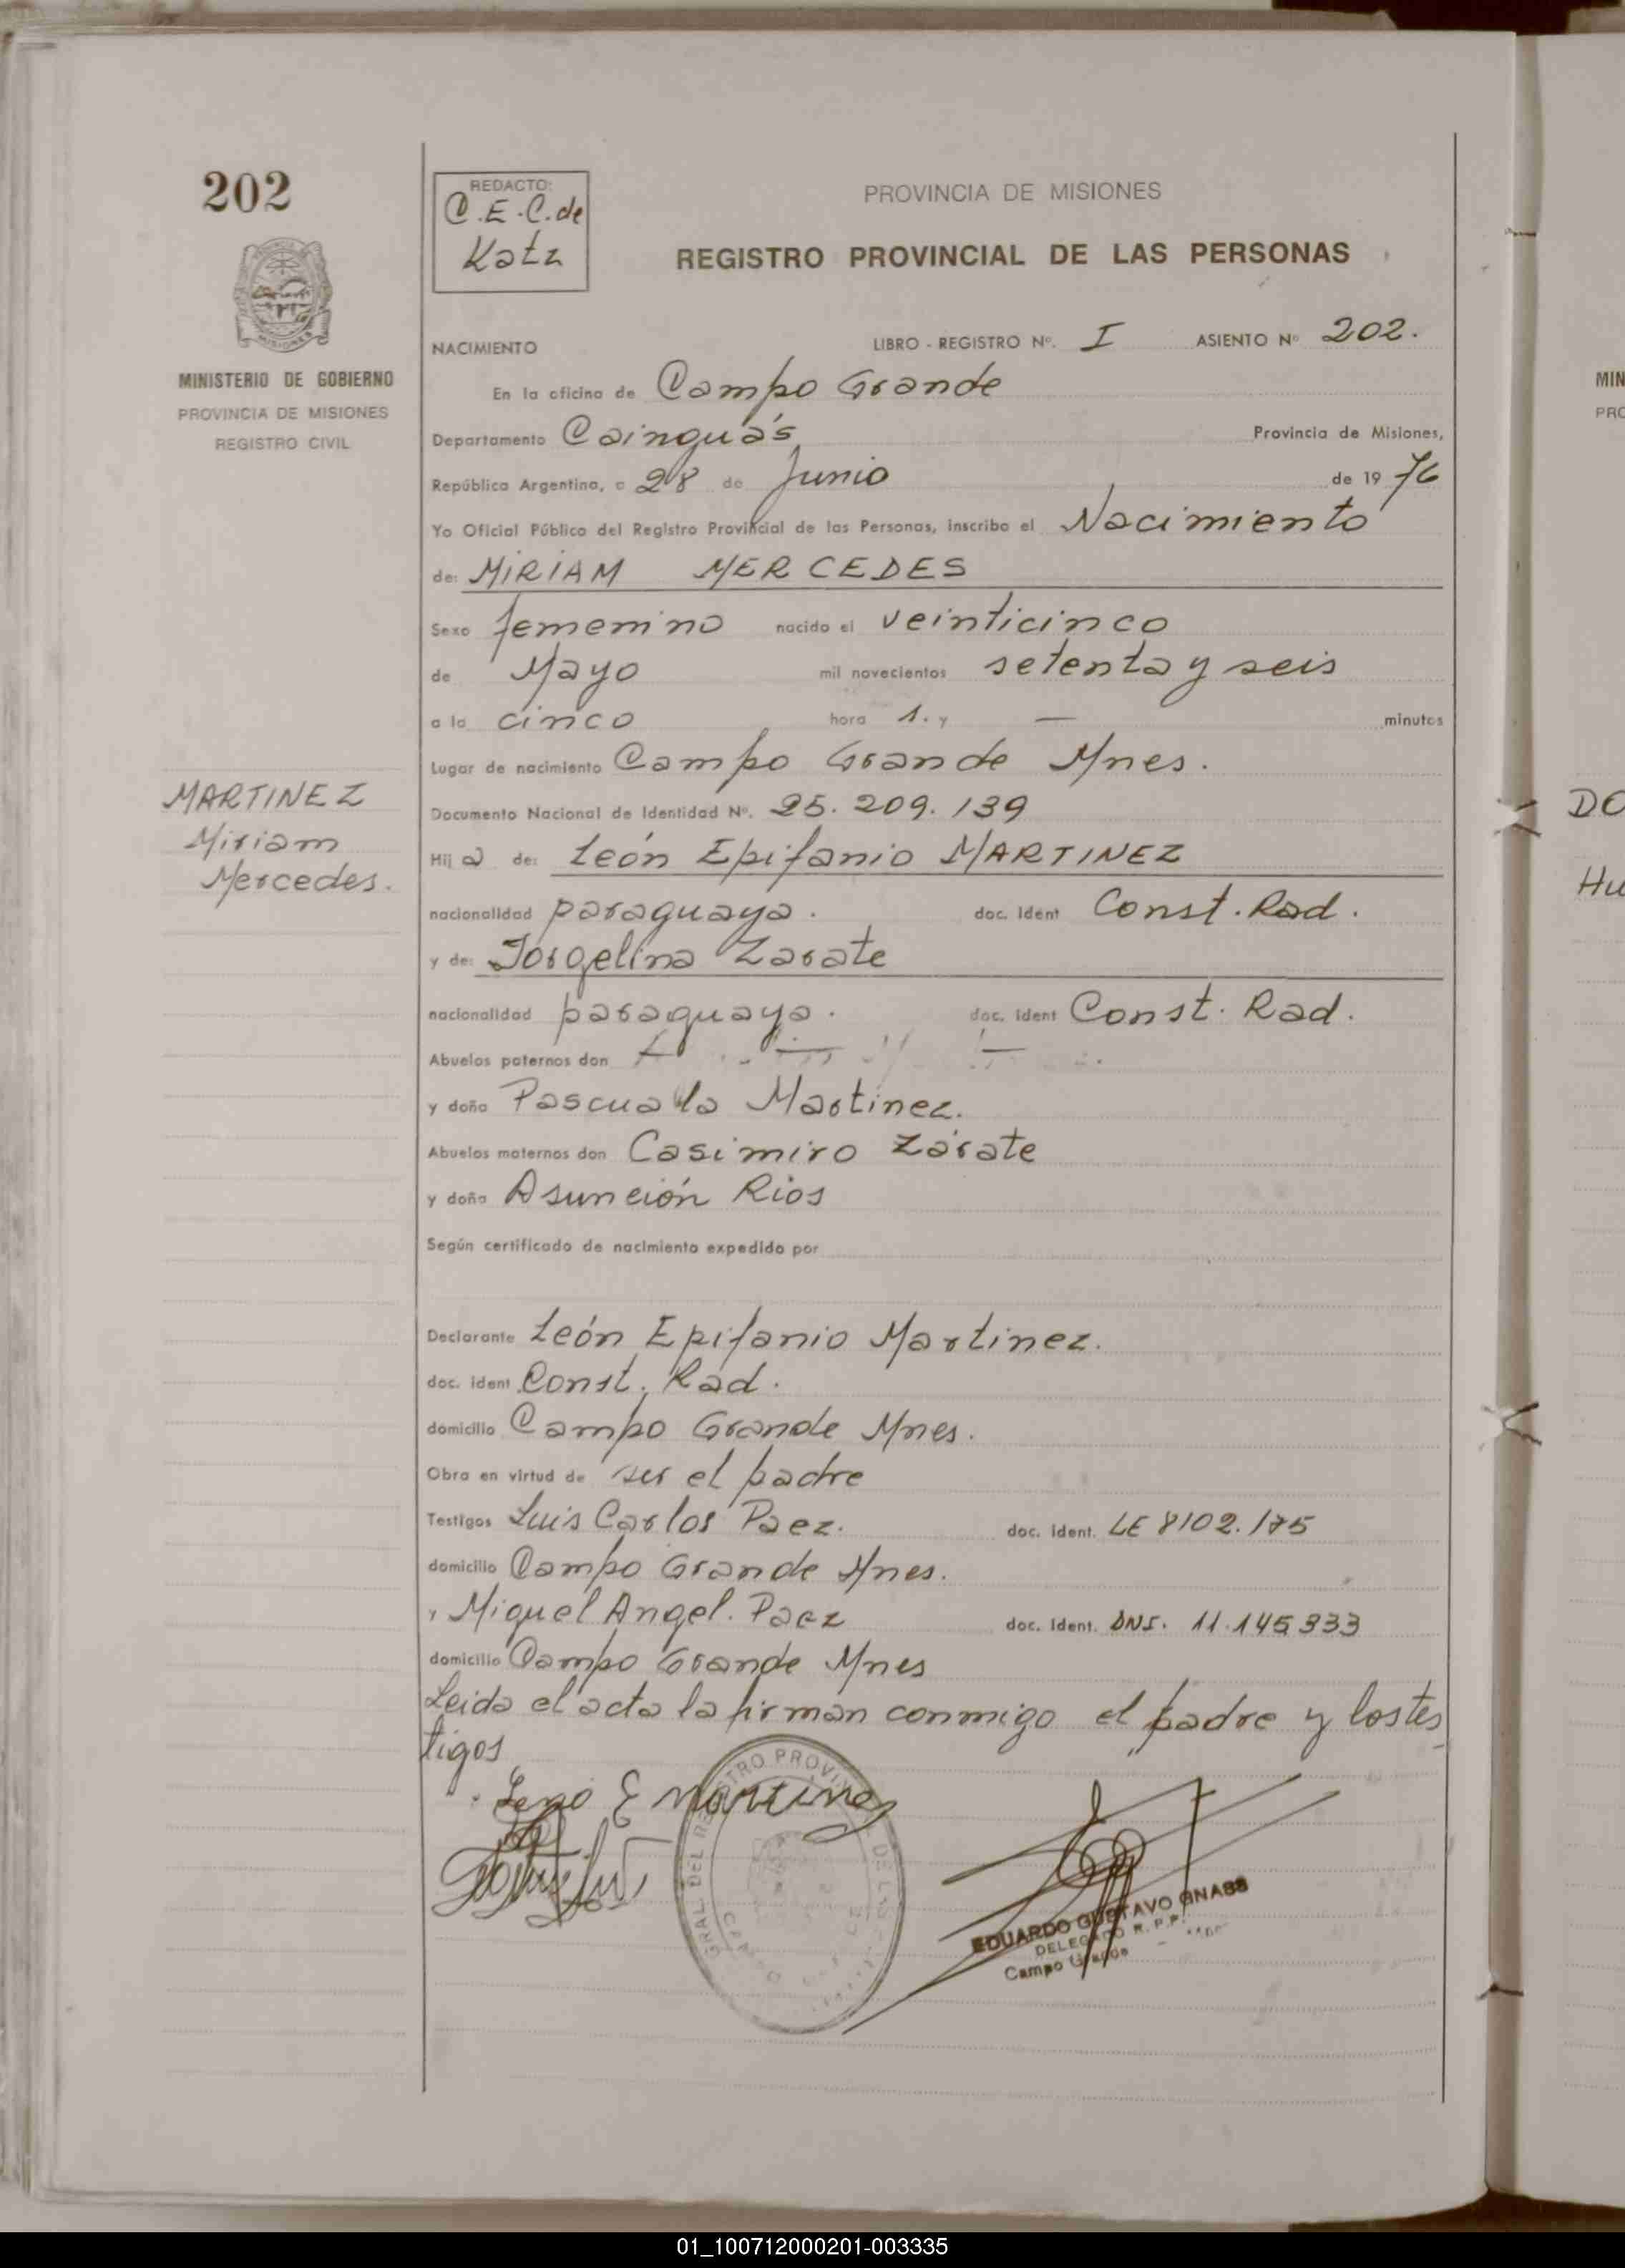 202
MISIONES
MINISTERIO DE GOBIERNO
PROVINCIA DE MISIONES
REGISTRO CIVIL
MARTINEZ
Miriam
Mercedes.
REDACTO:
C.E.C. de
Katz
PROVINCIA DE MISIONES
REGISTRO PROVINCIAL DE LAS PERSONAS
NACIMIENTO LIBRO - REGISTRO Nº. I ASIENTO Nº 202.
En la oficina de Campo Grande
Departamento Cainguás Provincia de Misiones,
República Argentina, a 28 de Junio de 1976
Yo Oficial Público del Registro Provincial de las Personas, inscribo el Nacimiento
de: MIRIAM MERCEDES
Sexo femenino nacido el veinticinco
de Mayo mil novecientos setenta y seis
a la cinco hora 1. y — minutos
Lugar de nacimiento Campo Grande Mnes.
Documento Nacional de Identidad Nº. 25.209.139
Hija de: León Epifanio MARTINEZ
nacionalidad paraguaya. doc. ident Const. Rad.
y de: Jorgelina Zarate
nacionalidad paraguaya. doc. ident Const. Rad.
Abuelos paternos don
y doña Pascuala Martinez.
Abuelos maternos don Casimiro Zárate
y doña Asunción Rios
Según certificado de nacimiento expedido por
Declarante León Epifanio Martinez.
doc. ident Const. Rad.
domicilio Campo Grande Mnes.
Obra en virtud de ser el padre
Testigos Luis Carlos Paez. doc. ident. LE 8102.175
domicilio Campo Grande Mnes.
y Miguel Angel. Paez doc. ident. DNI. 11.145.333
domicilio Campo Grande Mnes
Leida el acta la firman conmigo el padre y los tes
tigos
E Martinez
EDUARDO GUSTAVO GNASS
DELEGADO R.P.P.
Campo Grande
MIN
PRO
DO
Hu
01_100712000201-003335